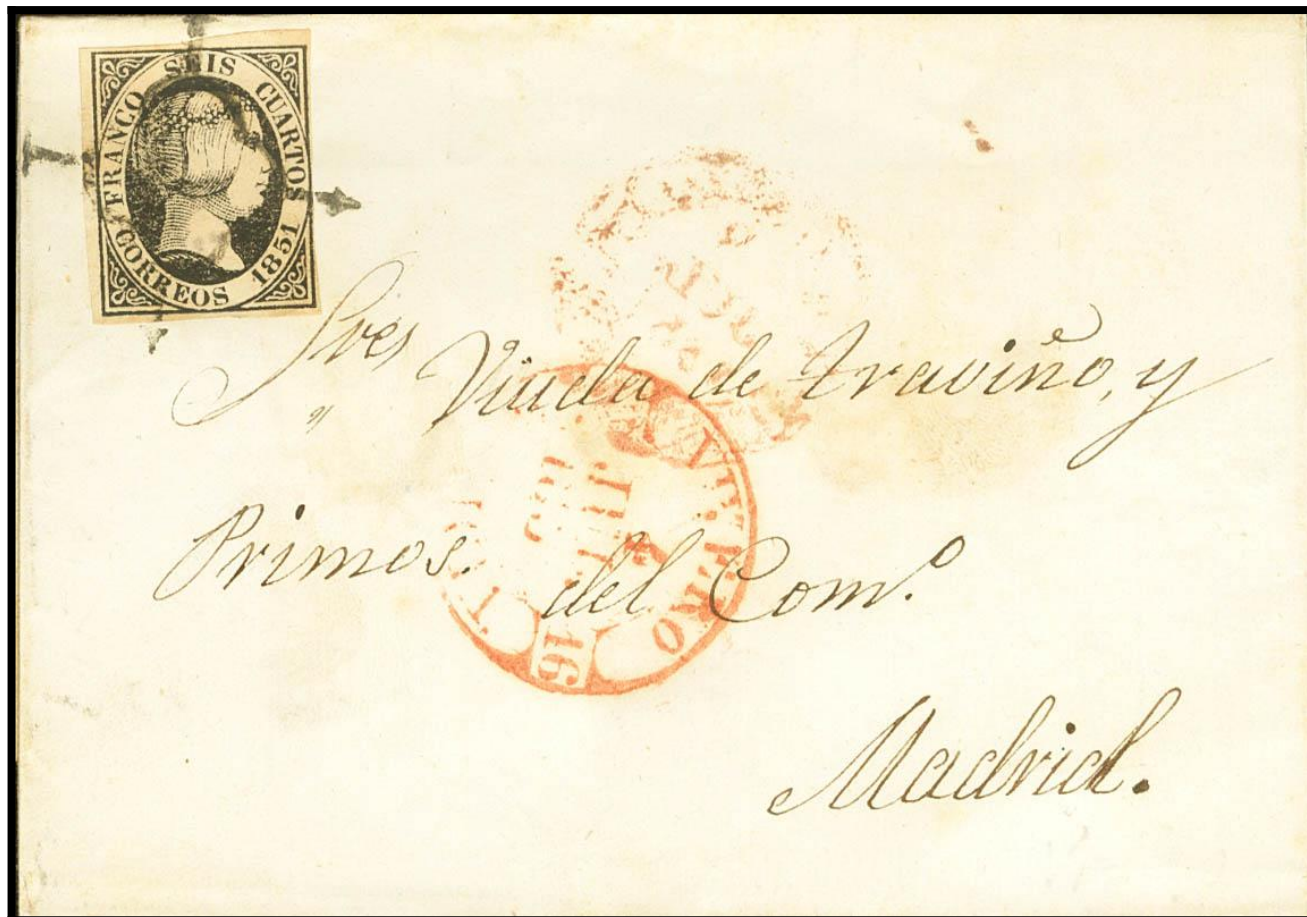 FRANCO SEIS CUARTOS
CORREOS 1851
Sres Viuda de Traviño, y
Primos. del Com.º
Madrid.
JUL
16